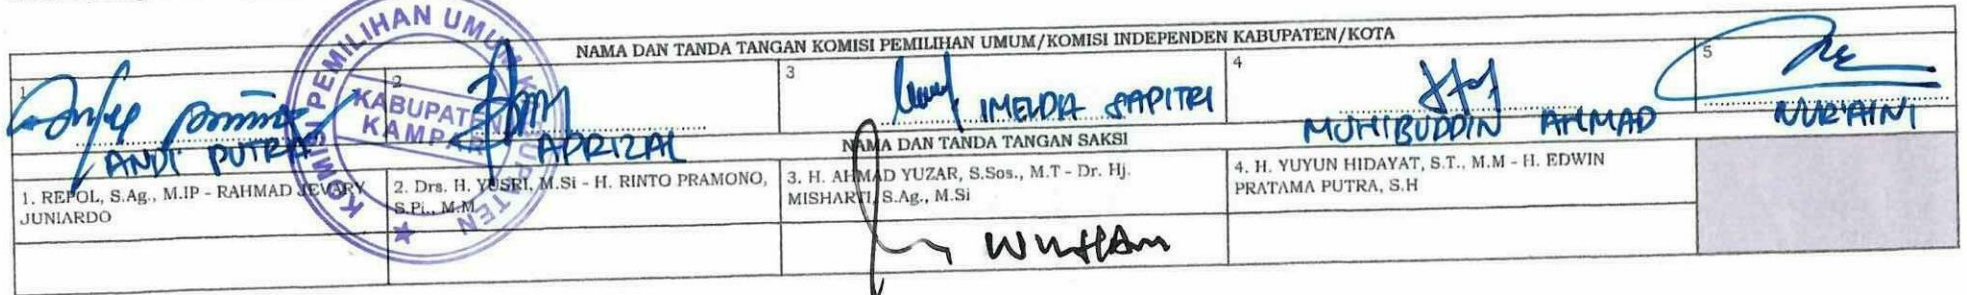 NAMA DAN TANDA TANGAN KOMISI PEMILIHAN UMUM/KOMISI INDEPENDEN KABUPATEN/KOTA
1
2
3
4
5
ANDI PUTRA
APRIZAL
IMELDA SAPITRI
MUHIBUDDIN AHMAD
NUR'AINI
KOMISI PEMILIHAN UMUM KABUPATEN
KABUPATEN
KAMPAR
NAMA DAN TANDA TANGAN SAKSI
1. REPOL, S.Ag., M.IP - RAHMAD JEVARY
JUNIARDO
2. Drs. H. YUSRI, M.Si - H. RINTO PRAMONO,
S.Pi., M.M
3. H. AHMAD YUZAR, S.Sos., M.T - Dr. Hj.
MISHARTI, S.Ag., M.Si
4. H. YUYUN HIDAYAT, S.T., M.M - H. EDWIN
PRATAMA PUTRA, S.H